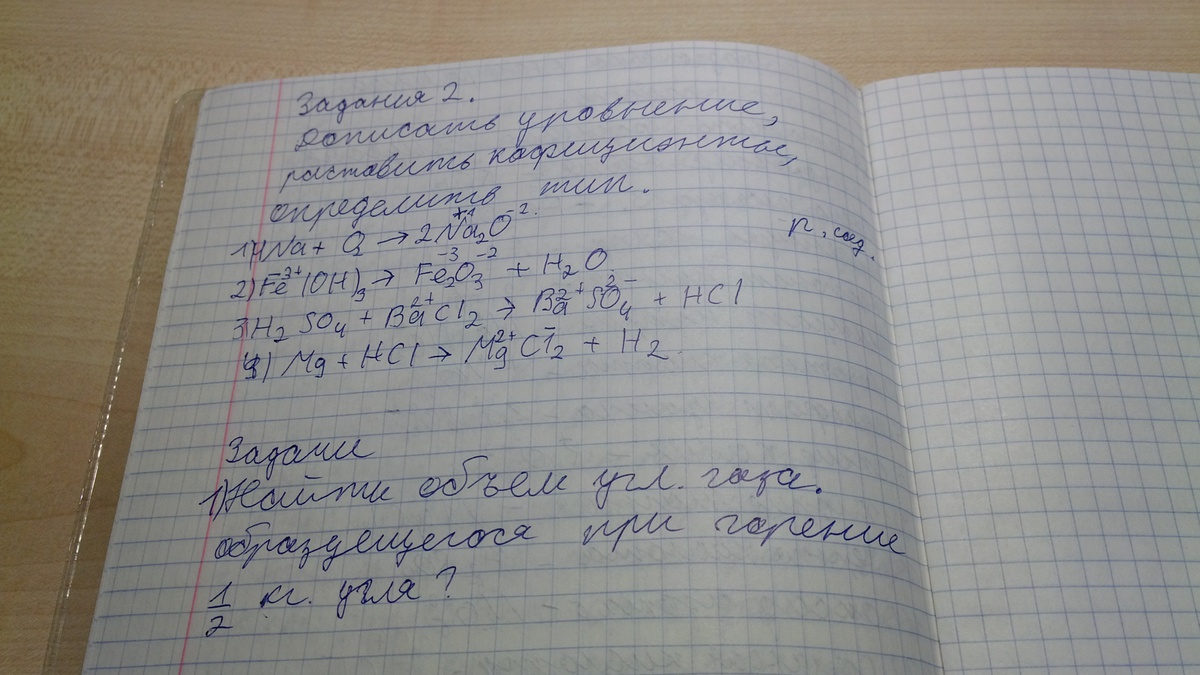 Задания 2.
Дописать уровнение,
раставить кофициэнты,
определить тип.
1) 4Na + O₂ → 2Na₂⁺¹O⁻².
р. соед.
2) Fe³⁺(OH)₃ → Fe₂⁻³O₃⁻² + H₂O
3) H₂SO₄ + Ba²⁺Cl₂ → Ba²⁺SO₄²⁻ + HCl
4) Mg + HCl → Mg²⁺Cl₂⁻ + H₂
Задачи
1) Найти объем угл. газа.
образдещегося при горение
1/2 кг. угля?